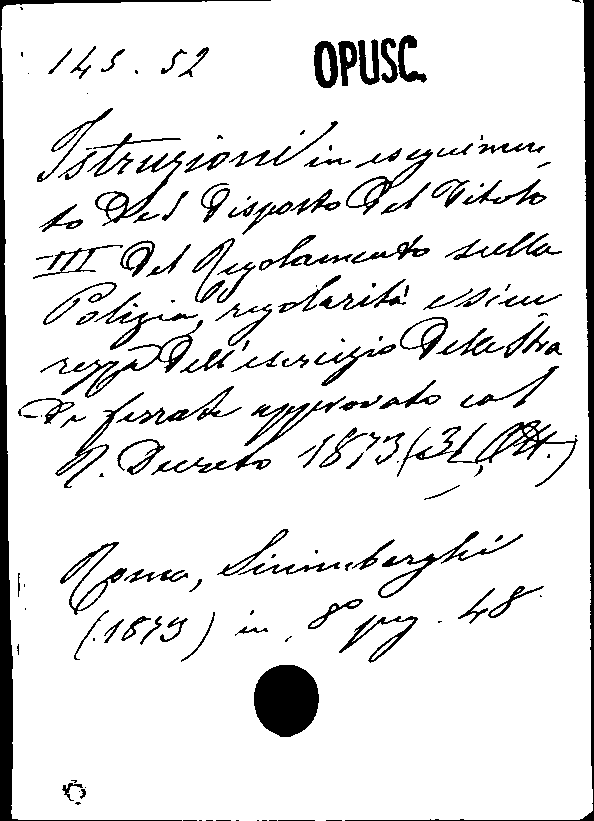 143.52 OPUSC.
Istruzioni in eseguimen
to del disposto del Titolo
III del Regolamento sulla
Polizia, regolarità e sicu
rezza dell'esercizio delle Stra
de ferrate approvato col
R. Decreto 1873 (31, Ott.)
Roma, Sinimberghi
(1873) in 8° pag. 48